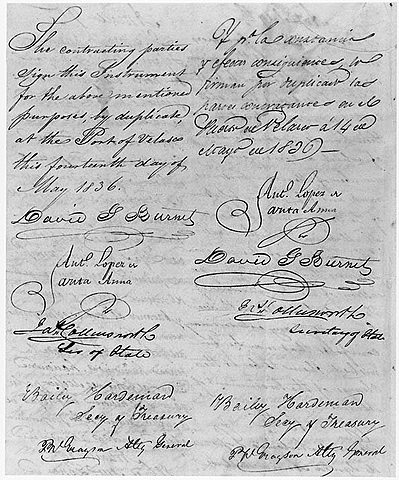 The contracting parties
sign this Instrument
for the above mentioned
purposes by duplicate,
at the Port of Velasco
this fourteenth day of
May 1836.
David G Burnet
Ant. Lopez de
Santa Anna
Jas Collinsworth
Sec of State
Baily Hardeman
Secy of Treasury
P W Grayson Atty General
Y pa la constancia
y efectos consiguientes, lo
firman por duplicado las
partes contratantes en el
Puerto de Velasco á 14 de
Mayo de 1836—
Ant. Lopez de
Santa Anna
David G Burnet
Jas Collinsworth
Secretary of State
Baily Hardeman
Secy of Treasury
P W Grayson Atty General